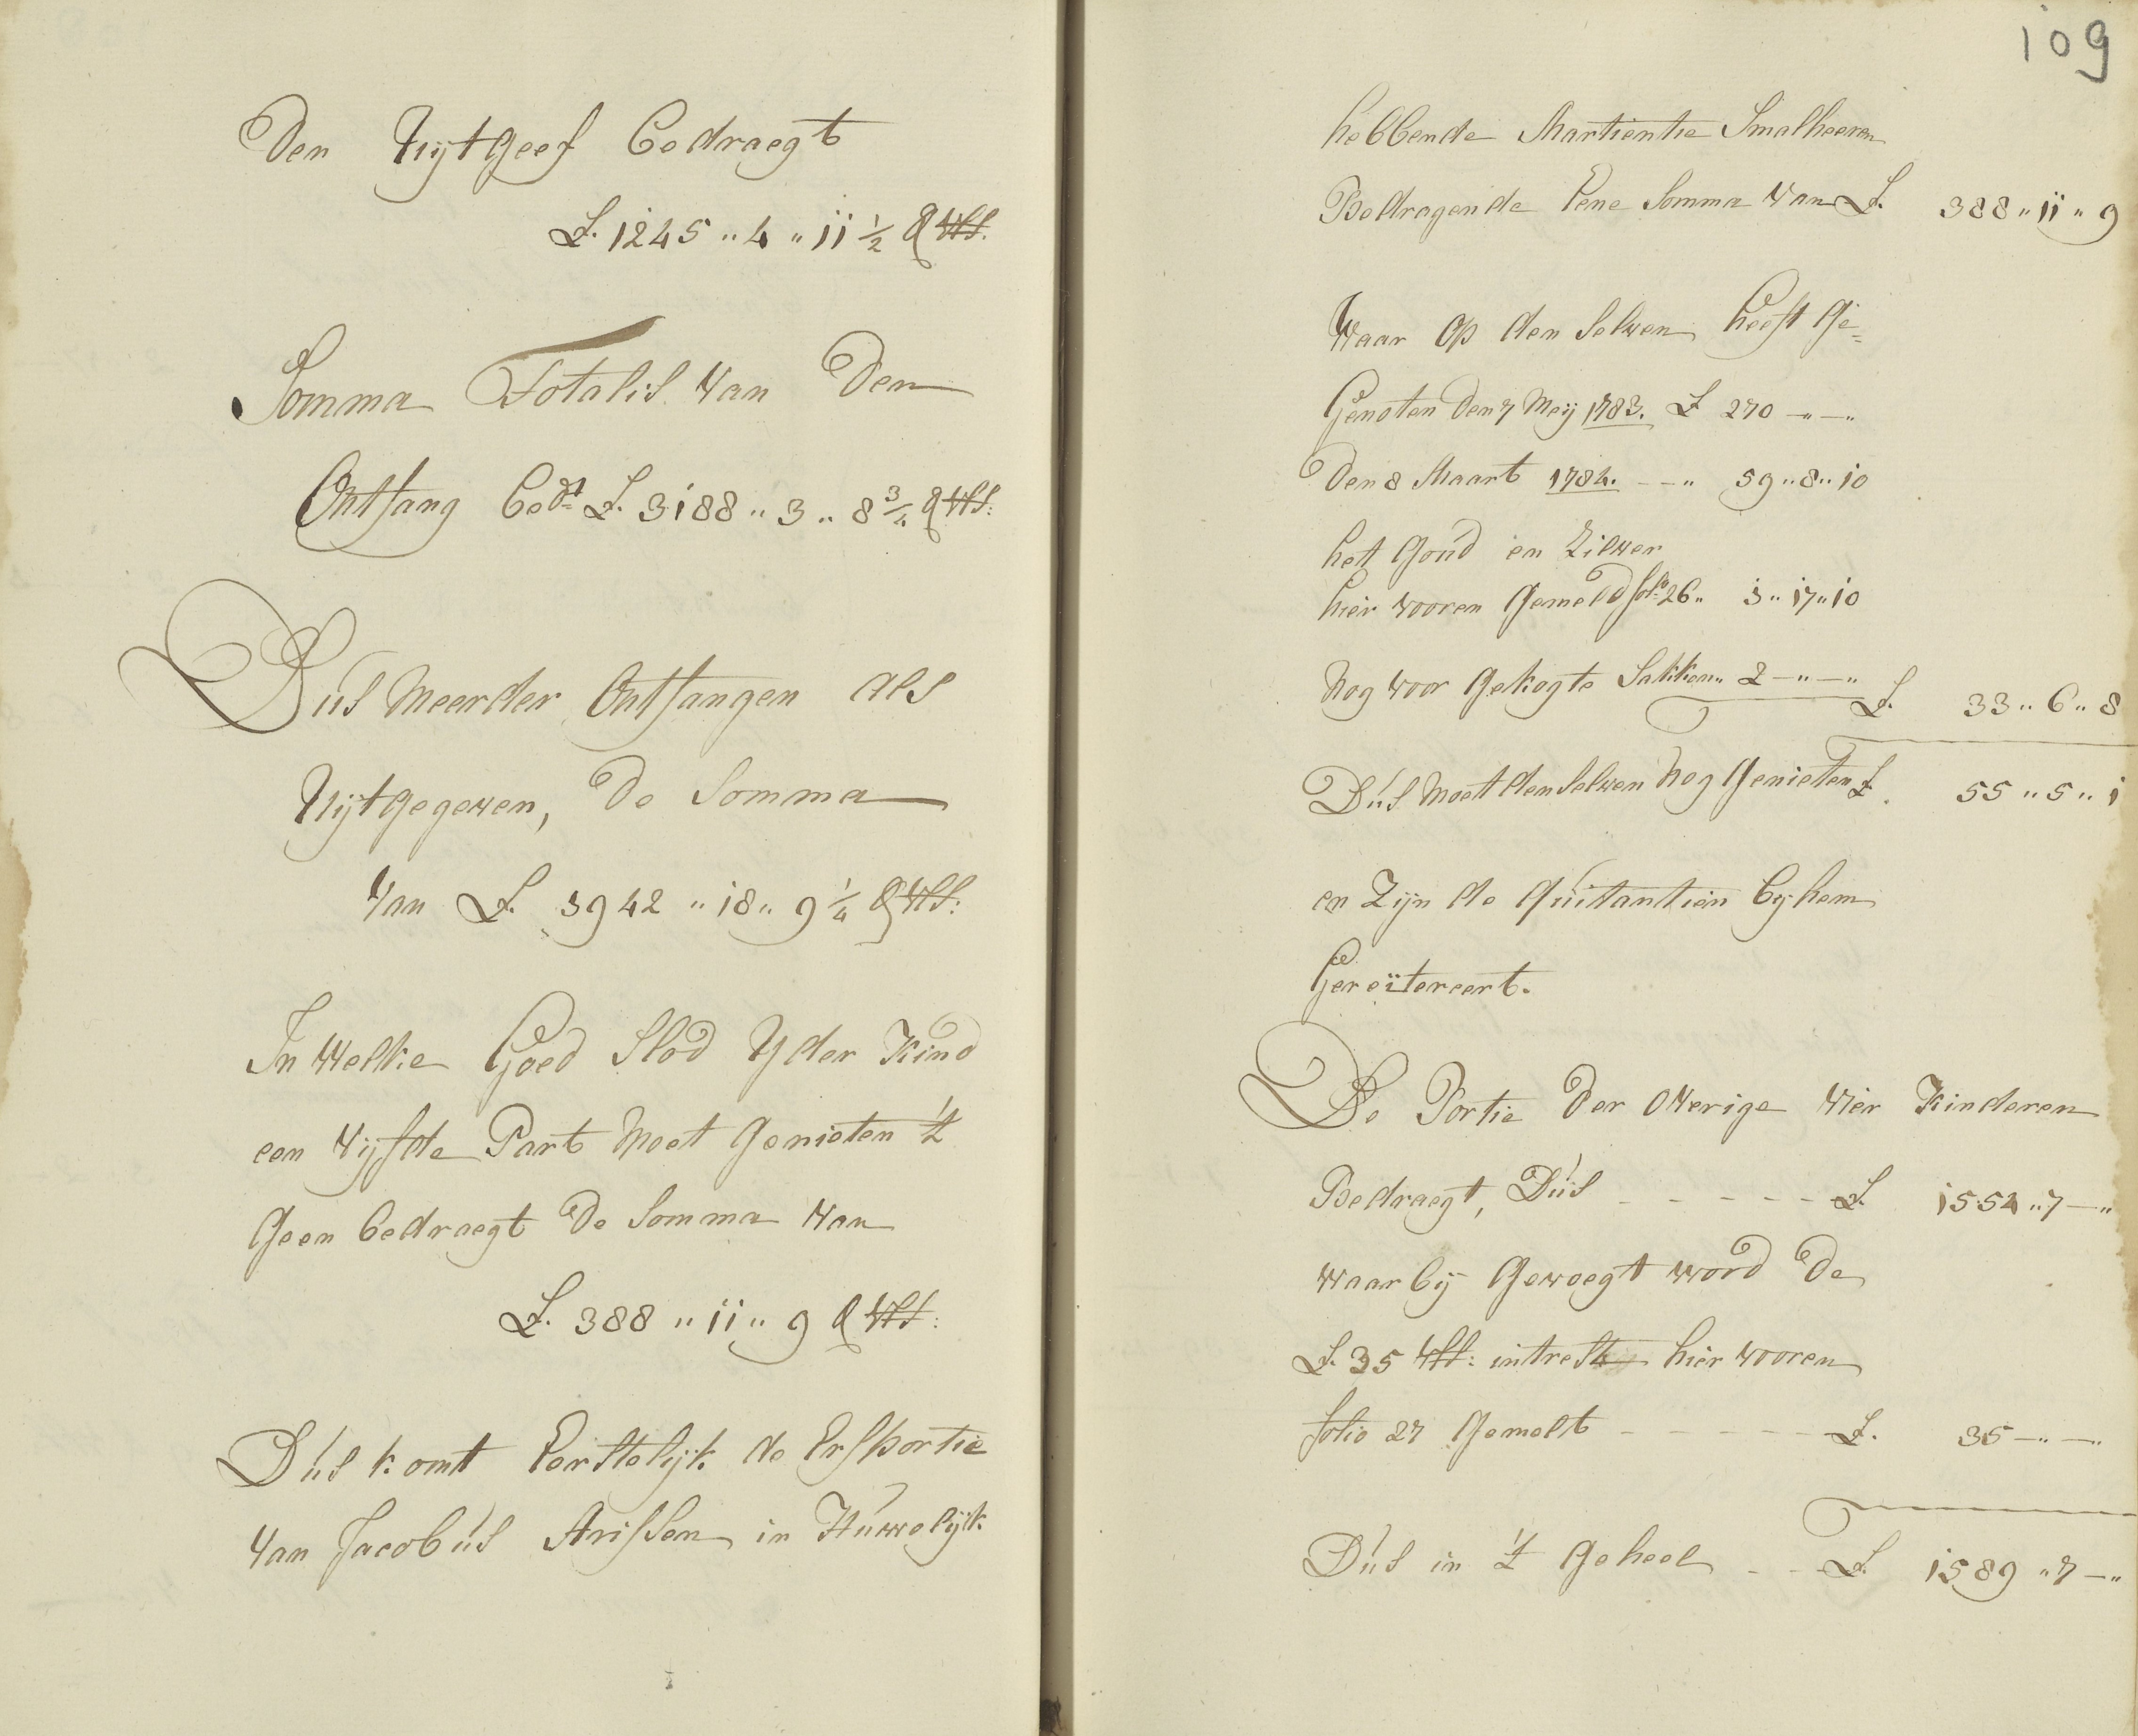 Den Uijtgeef bedraegt
£. 1245 „ 4 „ 11 ½ & Vls.
Somma Totalis van Den
Ontfang bedt £. 3188 „ 3 „ 8 ¾ & Vls:
Dus meerder Ontfangen als
Uijtgegeven, De Somma
van £. 3942 „ 18 „ 9 ¼ & Vls:
In Welke Goed Slod Yder Kind
een Vijfde Part Moet Genieten 't
Geen bedraegt De Somma van
£. 388 „ 11 „ 9 & Vls:
Dus komt Eerstelijk de Erfportie
van Jacobus Arissen in Huwelijk
109
hebbende Martientie Smalheeren
Bedragende Eene Somma Van £. 388 „ 11 „ 9
Waar Op den Selven heeft Ge=
Genoten Den 7 Meij 1783. £ 270 – „ – „
Den 8 Maart 1784. – – „ 59 „ 8 „ 10
het Goud en Zilver
hier vooren Gemeld folo 26 „ 3 „ 17 „ 10
Nog voor Gekogte Sakken „ 2 – „ – „ £. 33 „ 6 „ 8
Dus Moet den Selven Nog Genieten £. 55 „ 5 „ 1
en Zijn de Quitantien by hem
Gereitereert.
De Portie Der Overige Vier Kinderen
Bedraegt, Dus – – – – – £ 1554 „ 7 – „
Waar bij Gevoegt word De
£. 35 Vls: intrest hier vooren
folio 27 Gemelt – – – – – £. 35 – „ – „
Dus in 't Geheel – – £. 1589 „ 7 – „